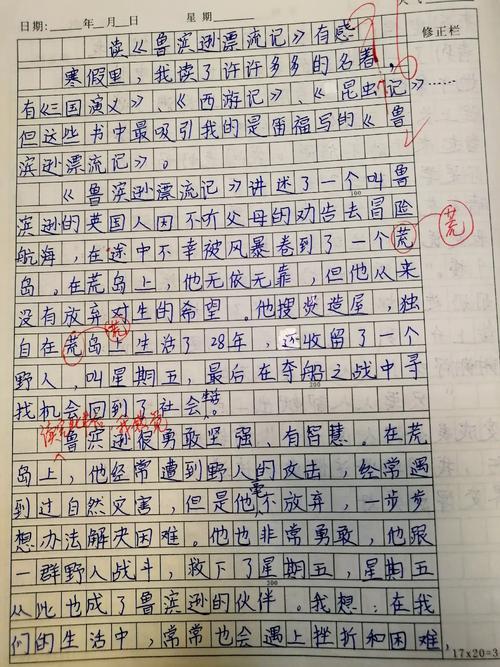 日期：____年__月__日 星期____ 修正栏
读《鲁滨逊漂流记》有感
寒假里，我读了许许多多的名著，
有《三国演义》、《西游记》、《昆虫记》……
但这些书中最吸引我的是雷福写的《鲁
滨逊漂流记》。
《鲁滨逊漂流记》讲述了一个叫鲁
100
滨逊的英国人因不听父母的劝告去冒险
航海，在途中不幸被风暴卷到了一个荒
荒
岛。在荒岛上，他无依无靠，但他从来
没有放弃对生的希望。他搜资造屋，独
荒
自在荒岛上生活了28年，还收留了一个
野人，叫星期五，最后在夺船之战中寻
200
找机会回到了社会。
鲁滨逊很勇敢坚强、有智慧。在荒
岛上，他经常遭到野人的攻击，经常遇
到过自然灾害，但是他毫不放弃，一步步
想办法解决困难。他也非常勇敢，他跟
一群野人战斗，救下了星期五，星期五
300
从此也成了鲁滨逊的伙伴。我想：在我
们的生活中，常常也会遇上挫折和困难，
17×20=3